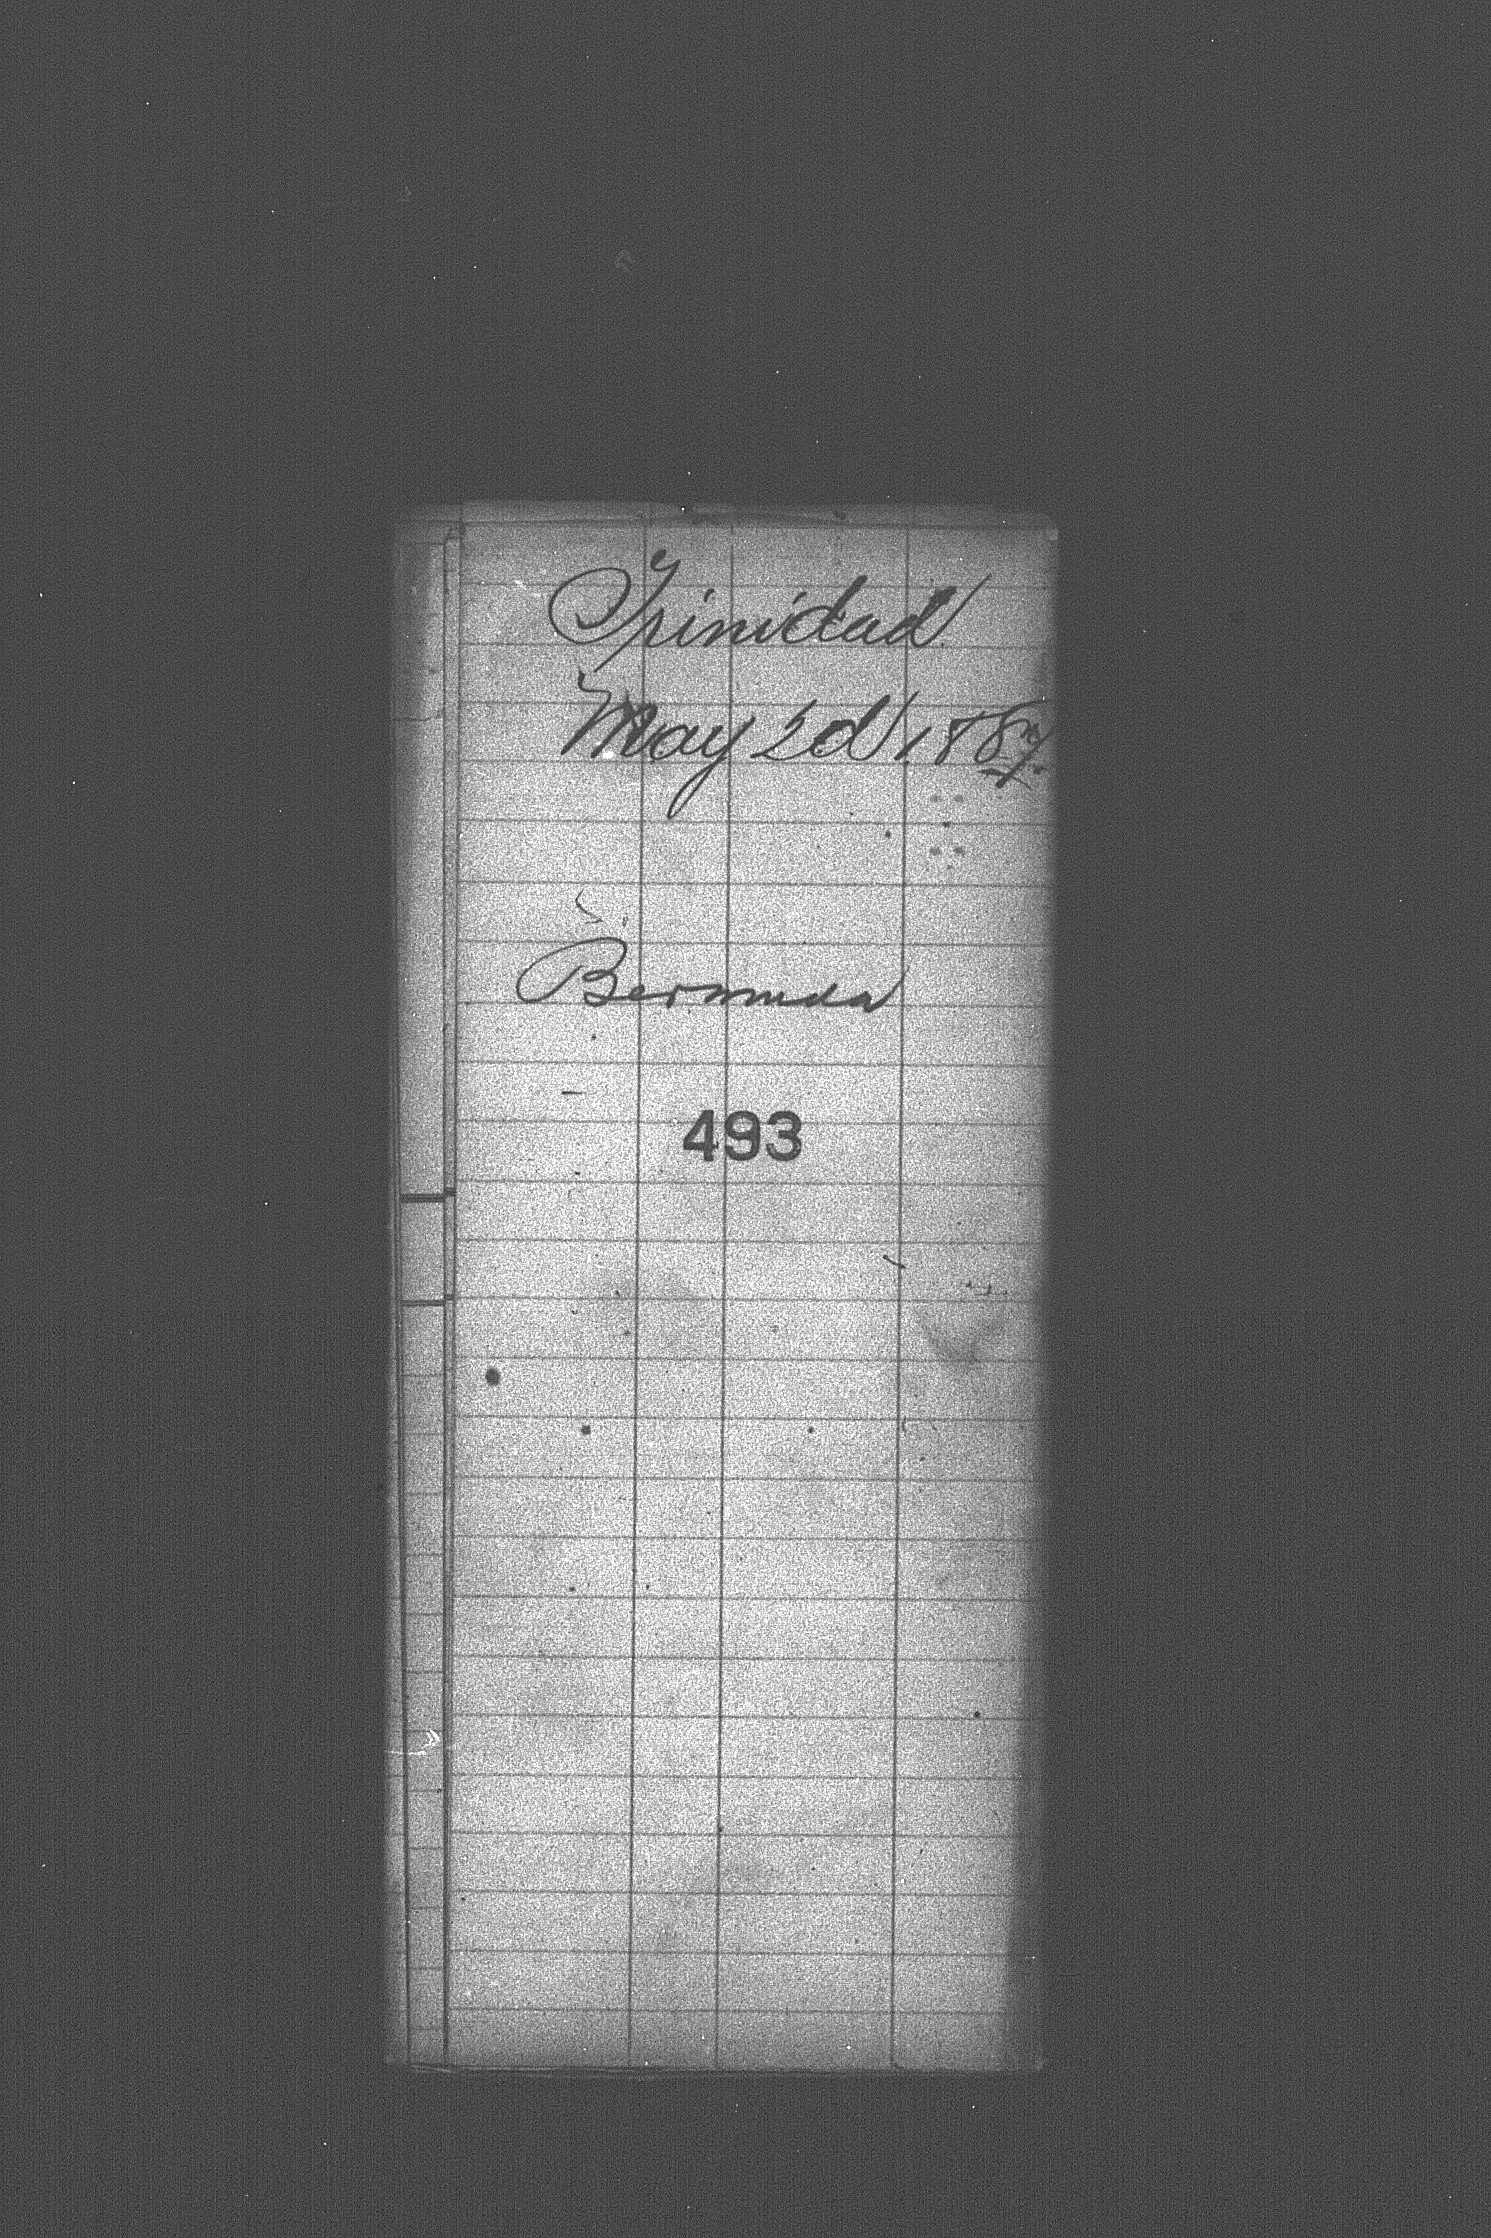 Trinidad
May 2d, 1887.
Bermuda
493